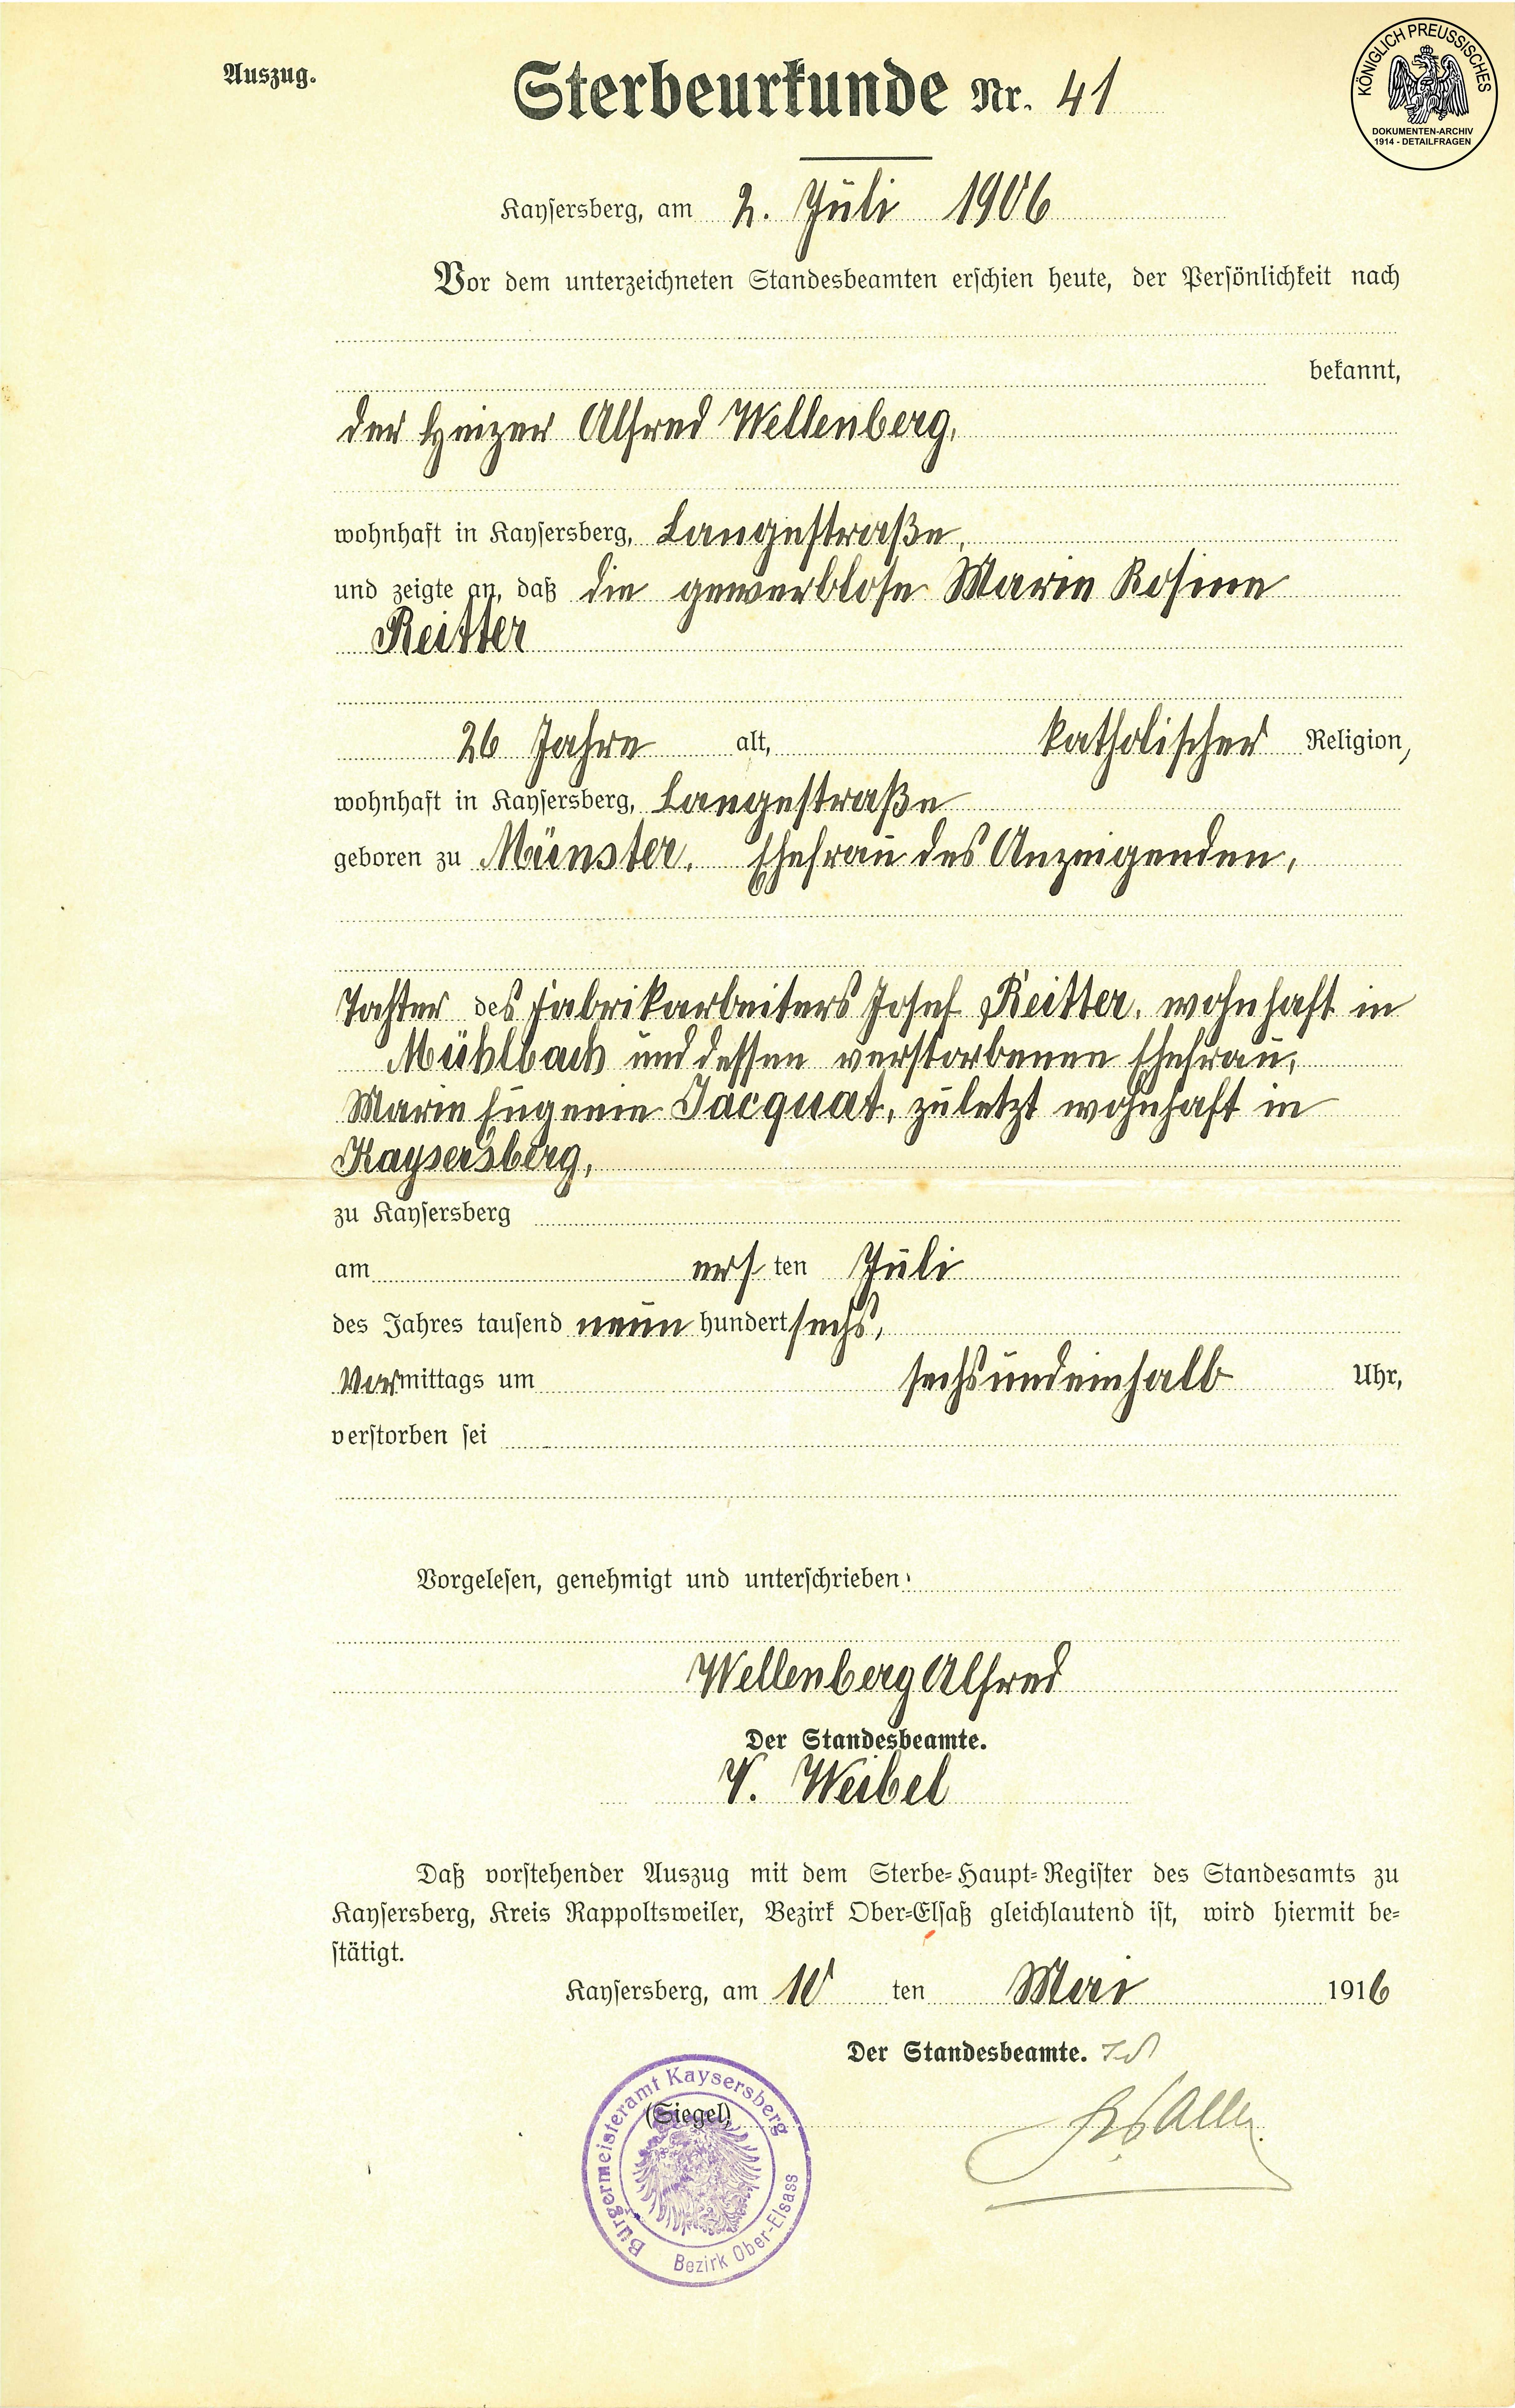 Auszug.
Sterbeurkunde Nr. 41
KÖNIGLICH PREUSSISCHES
DOKUMENTEN-ARCHIV
1914 - DETAILFRAGEN
Kaysersberg, am 2. Juli 1906
Vor dem unterzeichneten Standesbeamten erschien heute, der Persönlichkeit nach
bekannt,
der Heizer Alfred Wellenberg,
wohnhaft in Kaysersberg, Langestraße,
und zeigte an, daß die gewerblose Marie Rosine
Reitter
26 Jahre alt, katholischer Religion,
wohnhaft in Kaysersberg, Langestraße
geboren zu Münster, Ehefrau des Anzeigenden,
Tochter des Fabrikarbeiters Josef Reitter, wohnhaft in
Mühlbach und dessen verstorbenen Ehefrau,
Marie Eugenie Jacquat, zuletzt wohnhaft in
Kaysersberg,
zu Kaysersberg
am ersten Juli
des Jahres tausend neun hundert sechs,
Vormittags um sechsundeinhalb Uhr,
verstorben sei
Vorgelesen, genehmigt und unterschrieben:
Wellenberg Alfred
Der Standesbeamte.
V. Weibel
Daß vorstehender Auszug mit dem Sterbe-Haupt-Register des Standesamts zu
Kaysersberg, Kreis Rappoltsweiler, Bezirk Ober-Elsaß gleichlautend ist, wird hiermit be-
stätigt.
Kaysersberg, am 10ten Mai 1916
Der Standesbeamte.
(Siegel)
Bürgermeisteramt Kaysersberg
Bezirk Ober-Elsass